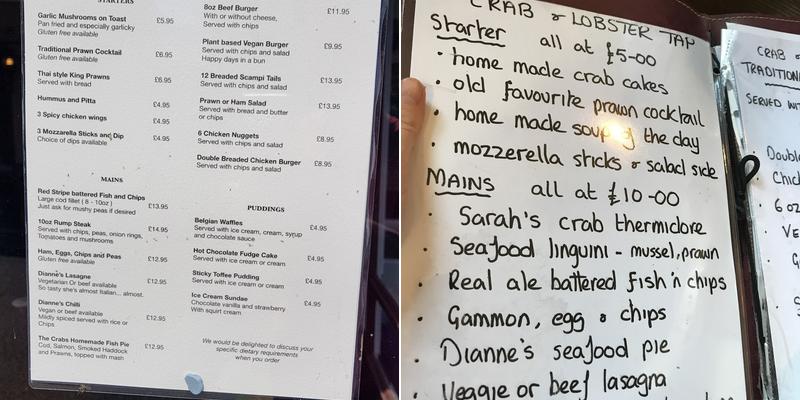 STARTERS
Garlic Mushrooms on Toast £5.95
Pan fried and especially garlicky
Gluten free available
Traditional Prawn Cocktail £6.95
Gluten free available
Thai style King Prawns £6.95
Served with bread
Hummus and Pitta £4.95
3 Spicy chicken wings £4.95
3 Mozzarella Sticks and Dip £4.95
Choice of dips available
MAINS
Red Stripe battered Fish and Chips
Large cod fillet ( 8 - 10oz ) £13.95
Just ask for mushy peas if desired
10oz Rump Steak £14.95
Served with chips, peas, onion rings,
Tomatoes and mushrooms
Ham, Eggs, Chips and Peas £12.95
Gluten free available
Dianne's Lasagne £12.95
Vegetarian Or beef available
So tasty she's almost Italian... almost.
Dianne's Chilli
Vegan or beef available £12.95
Mildly spiced served with rice or
Chips
The Crabs Homemade Fish Pie £12.95
Cod, Salmon, Smoked Haddock
and Prawns, topped with mash
8oz Beef Burger £11.95
With or without cheese,
Served with chips
Plant based Vegan Burger £9.95
Served with chips and salad
Happy days in a bun
12 Breaded Scampi Tails £13.95
Served with chips and salad
Prawn or Ham Salad £13.95
Served with bread and butter
or chips
6 Chicken Nuggets £8.95
Served with chips and salad
Double Breaded Chicken Burger £8.95
Served with chips and salad
PUDDINGS
Belgian Waffles £4.95
Served with ice cream, cream, syrup
and chocolate sauce
Hot Chocolate Fudge Cake £4.95
Served with ice cream or cream
Sticky Toffee Pudding £4.95
Served with ice cream or cream
Ice Cream Sundae £4.95
Chocolate vanilla and strawberry
With squirt cream
We would be delighted to discuss your
specific dietary requirements
when you order
CRAB & LOBSTER TAP
Starter all at £5-00
• home made crab cakes
• old favourite prawn cocktail
• home made soup of the day
• mozzerella sticks & salad side
MAINS all at £10-00
• Sarah's crab thermidore
• Seafood linguini - mussel, prawn
• Real ale battered fish 'n chips
• Gammon, egg & chips
• Dianne's seafood pie
• Veggie or beef lasagna
CRAB
TRADITION
SERVED
Double
6 oz